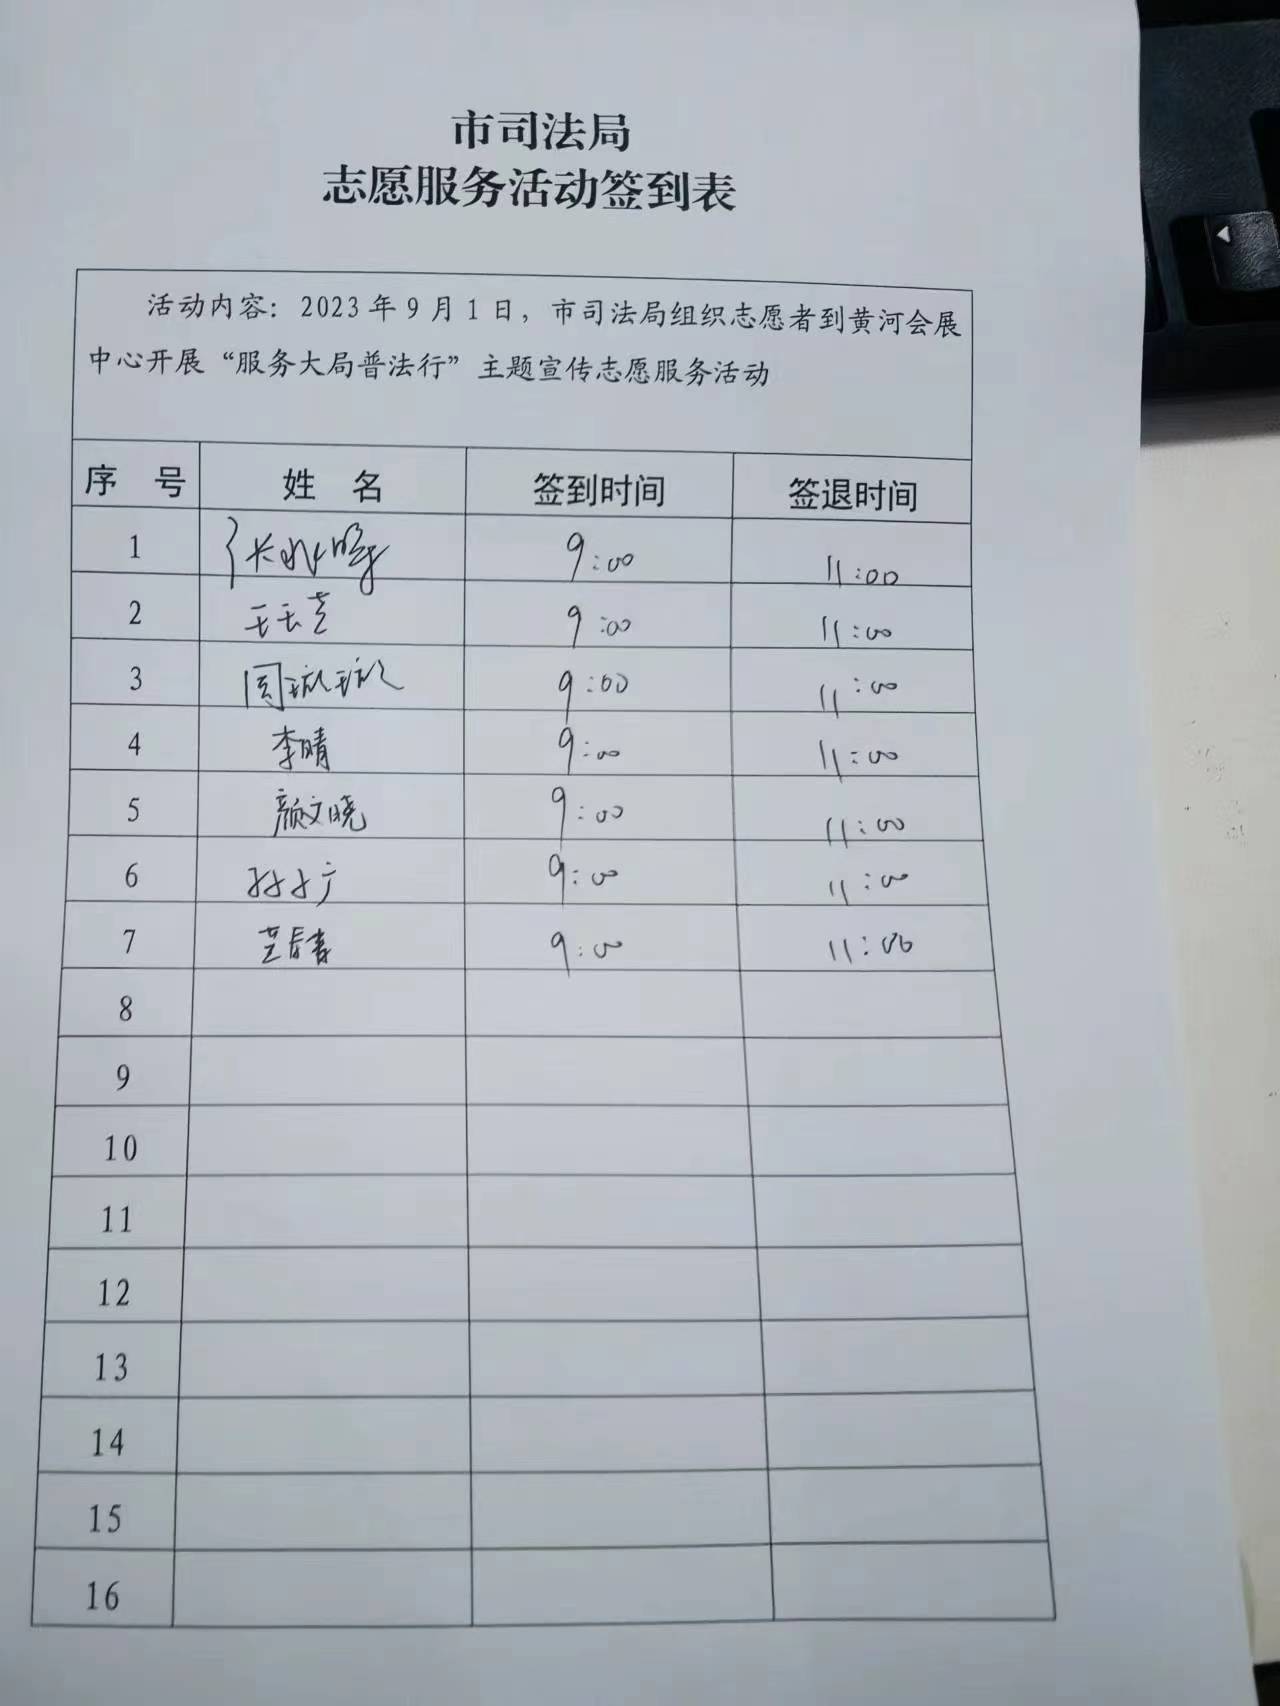 市司法局
志愿服务活动签到表
活动内容：2023年9月1日，市司法局组织志愿者到黄河会展
中心开展“服务大局普法行”主题宣传志愿服务活动
序 号 姓 名 签到时间 签退时间
1 9:00 11:00
2 9:00 11:00
3 周璇璇 9:00 11:00
4 李晴 9:00 11:00
5 颜文晓 9:00 11:00
6 9:00 11:00
7 9:00 11:00
8
9
10
11
12
13
14
15
16